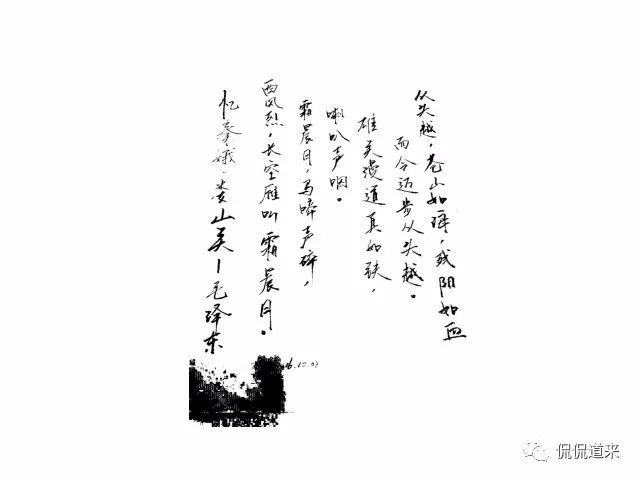 忆秦娥·娄山关—毛泽东
西风烈，长空雁叫霜晨月。
霜晨月，马啼声碎，
喇叭声咽。
雄关漫道真如铁，
而今迈步从头越。
从头越，苍山如海，残阳如血
侃侃道来